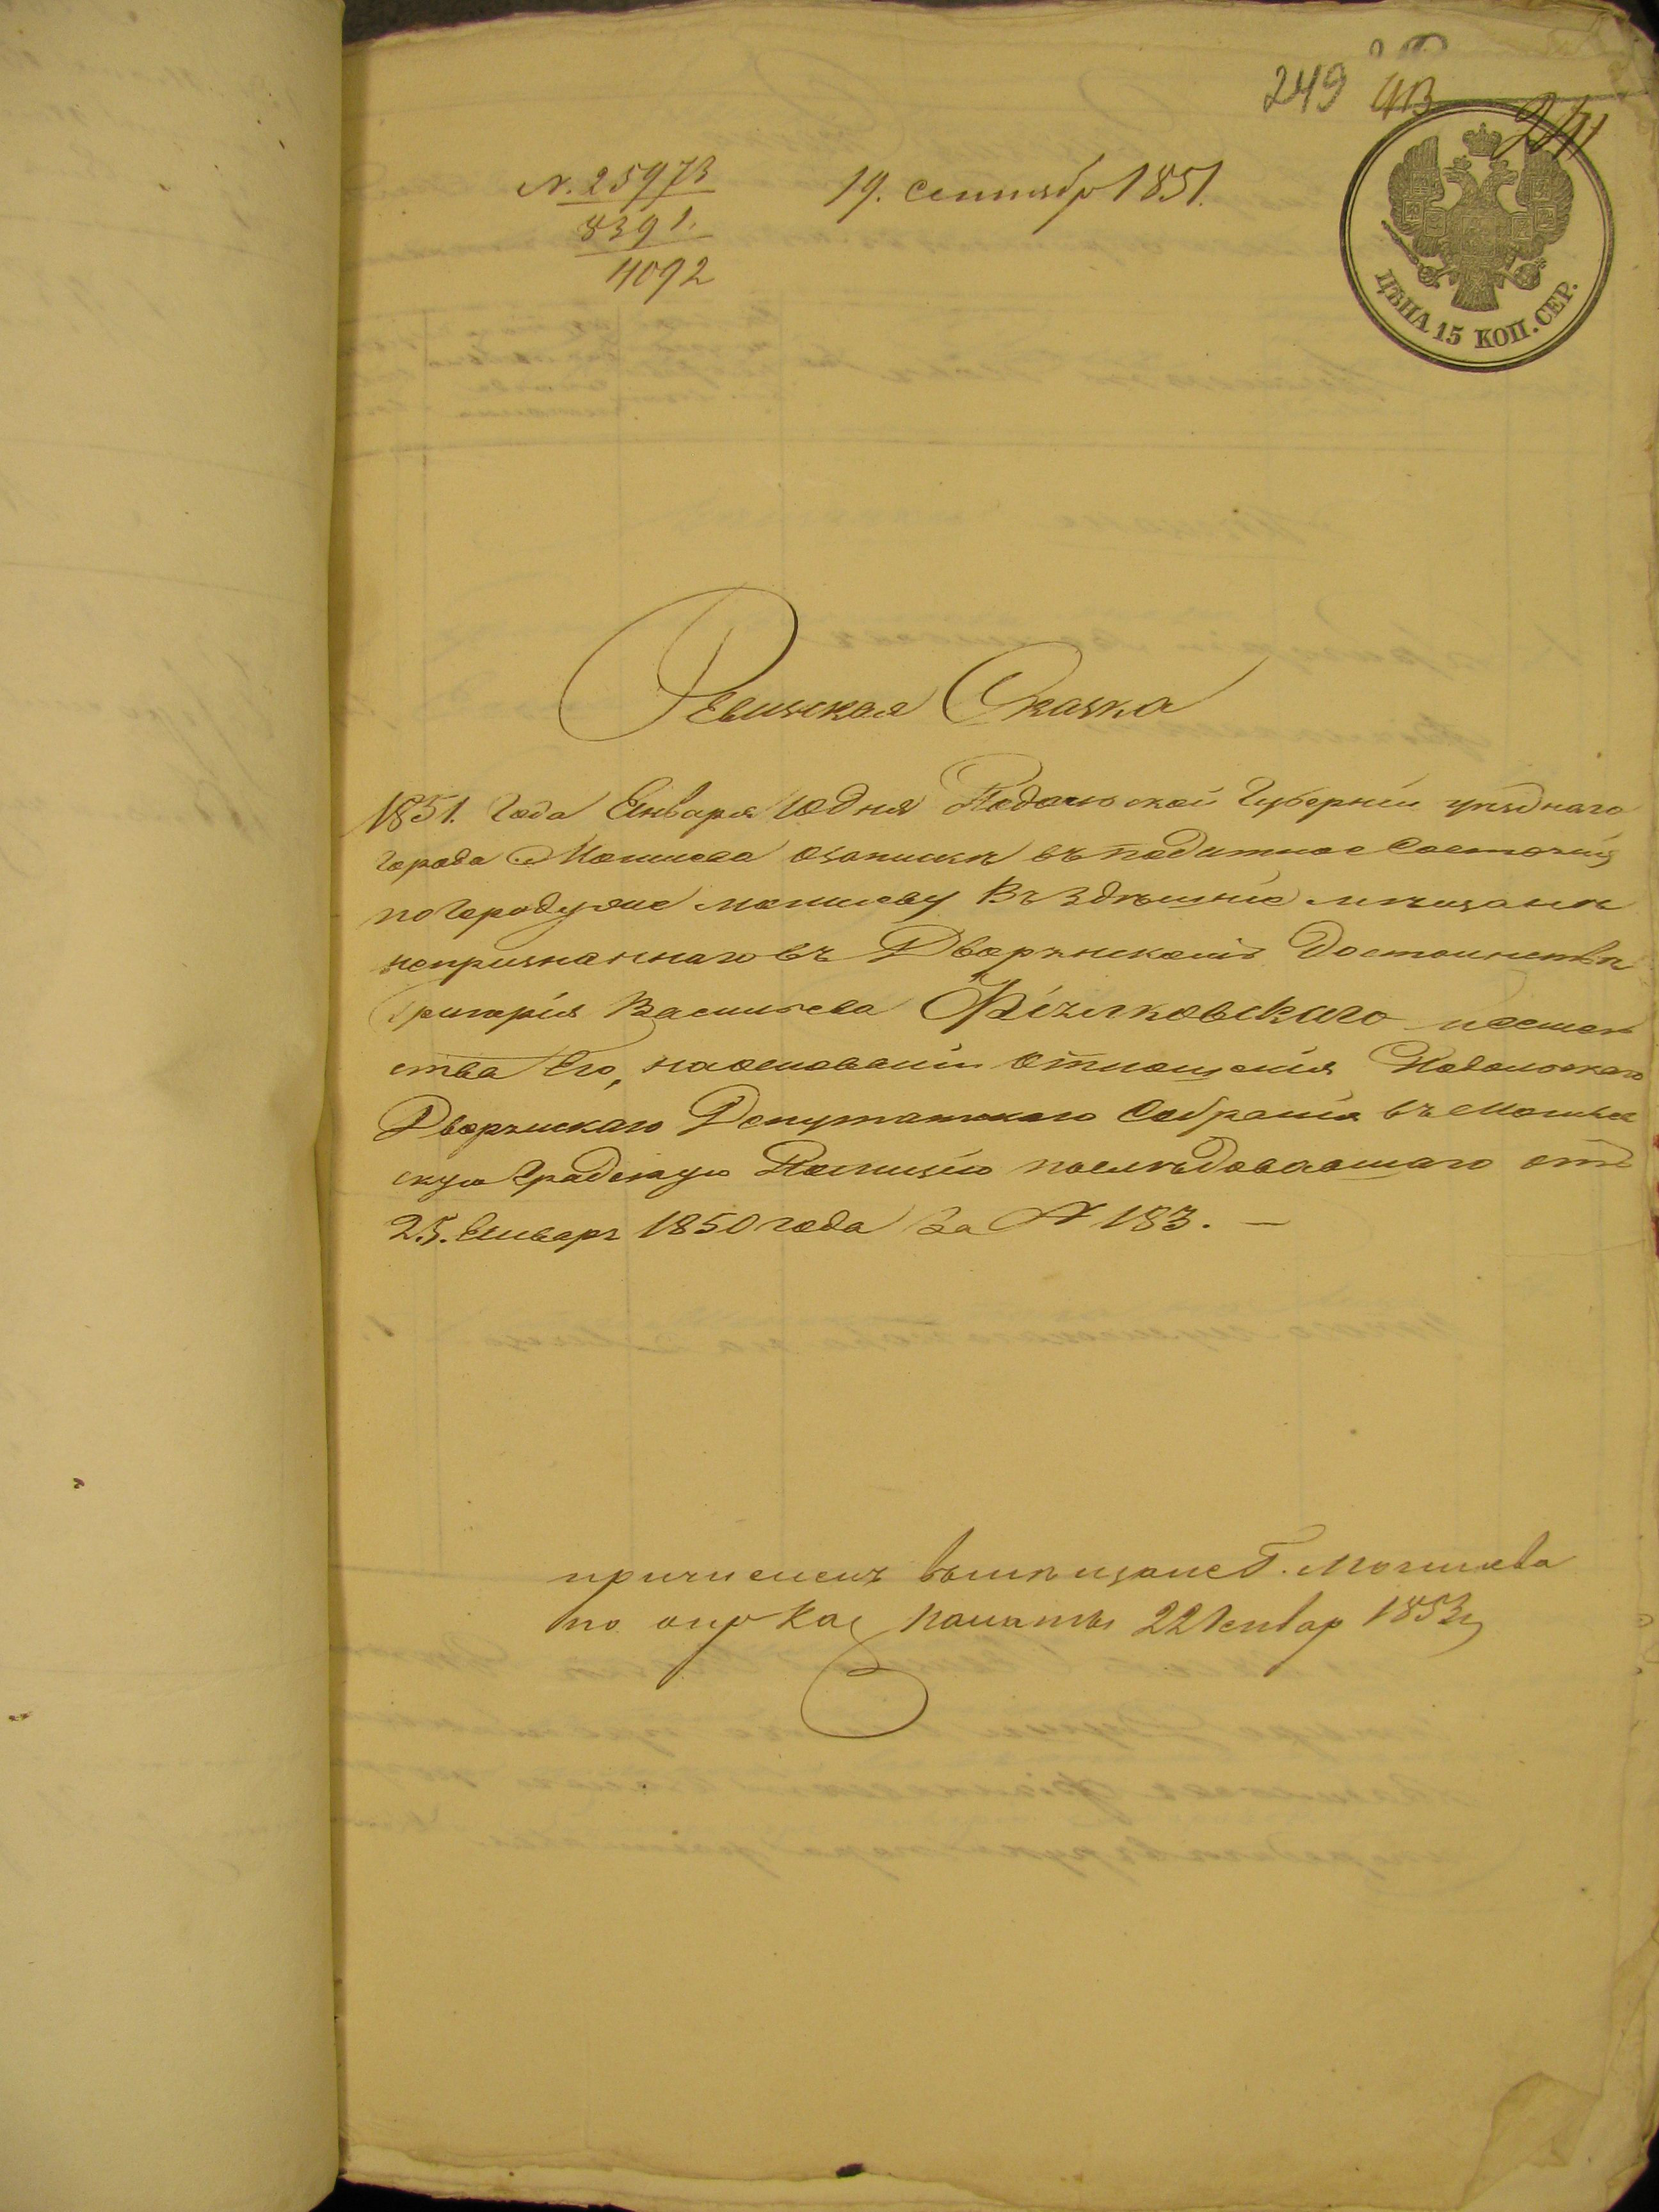 249
N. 25973
8391.
4092
19. сентябр 1851.
ЦѢНА 15 КОП. СЕР.
Ревизская Сказка
1851. Года Января 10 дня Подольской Губерніи уѣзднаго
города Могилева о запискѣ въ податное состояніе
по городу же Могилеву въ здѣшніе мѣщане
непризнаннаго въ Дворянскомъ Достоинствѣ
Григорія Васильева Фіялковскаго и семей
ства Его, на основаніи отношенія Подольскаго
Дворянскаго Депутатскаго Собранія въ Могилев
скую Градскую Полицію послѣдовавшаго отъ
25. Январ 1850 года За № 183. —
причисленъ въ мѣщане г. Могилева
по ук Каз Палаты 22 Январ 1853